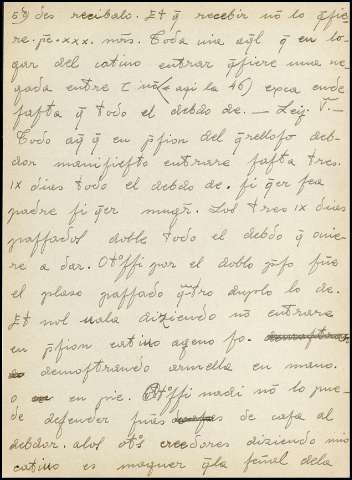 des recibalo. Et q̃ recebir nõ lo q̃fie
re. pẽ. xxx. mrs. Toda vina aq̃l q̃ en lo-
gar del catiuo entrar q̃fiere una ue
gada entre
fafta q̃ todo el debdo de. — Ley. V. —
Todo aq̃ q̃ en p̃fion del q̃rellofo deb-
dor manifiefto entrare fafta tres.
ix dias todo el debdo de. fi q̃er fea
padre fi q̃er mugr̃. Los tres ix dias
paffados doble todo el debdo q̃ ouie-
re a dar. Otof̃fi por el doblo p̃fo fue
el plaso paffado duplo lo de.
Et nol uala diziendo nõ entrara
en p̃fion catiuo ageno fo.
demoftrando armella en mano.
o en pie. Otof̃fi nadi nõ lo pue-
de defender de cafa al
debdor. alos otos creedores diziendo mio
catiuo es maguer q̃la feñal dela